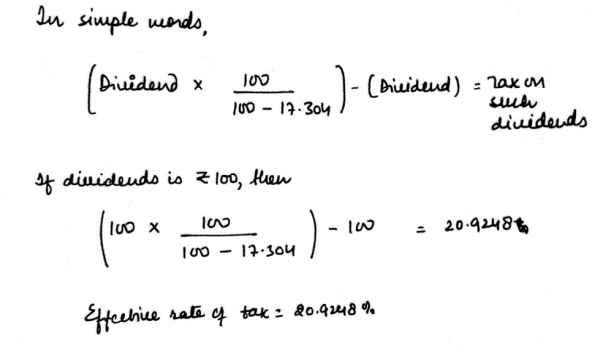 In simple words,
(Dividend × 100 / 100 - 17.304) - (Dividend) = Tax on such dividends
If dividends is ₹100, then
(100 × 100 / 100 - 17.304) - 100 = 20.9248%
Effective rate of tax = 20.9248%